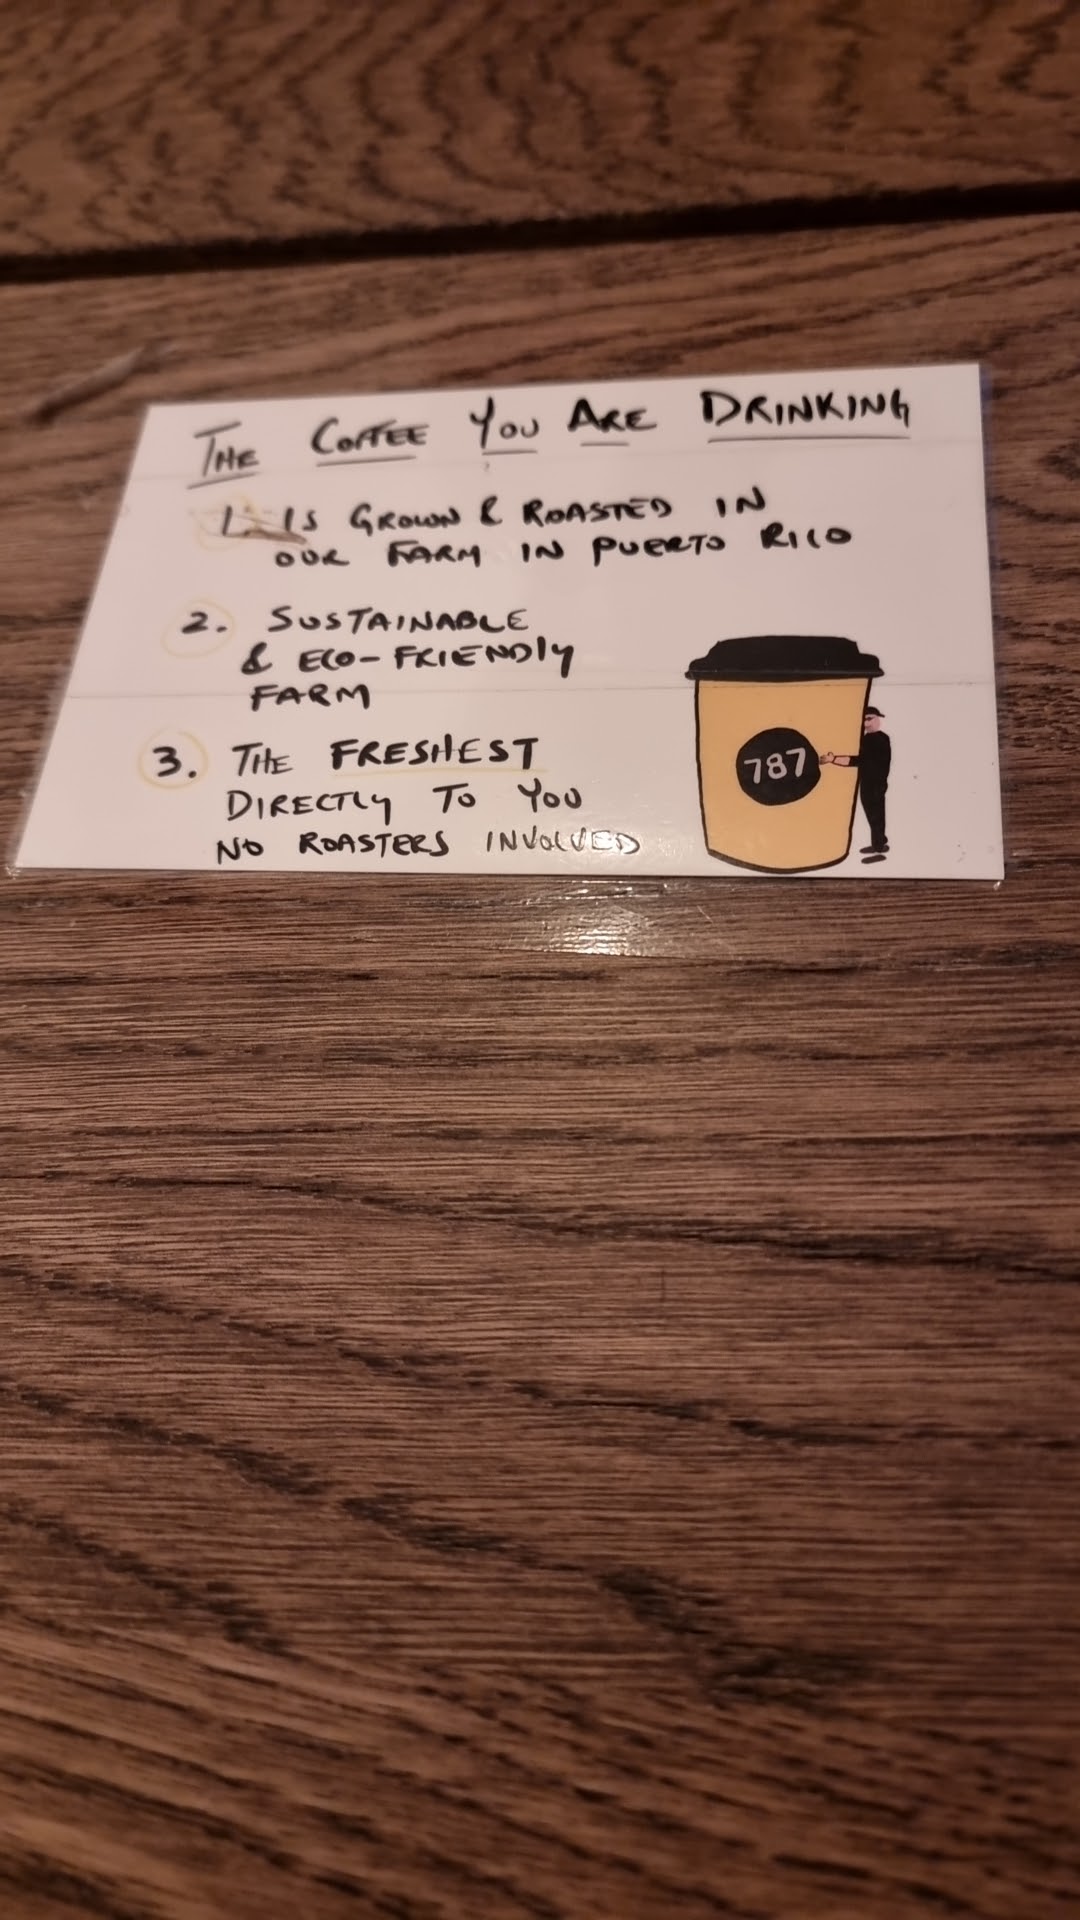 THE COFFEE YOU ARE DRINKING
1. IS GROWN & ROASTED IN
OUR FARM IN PUERTO RICO
2. SUSTAINABLE
& ECO-FRIENDLY
FARM
3. THE FRESHEST
DIRECTLY TO YOU
NO ROASTERS INVOLVED
787